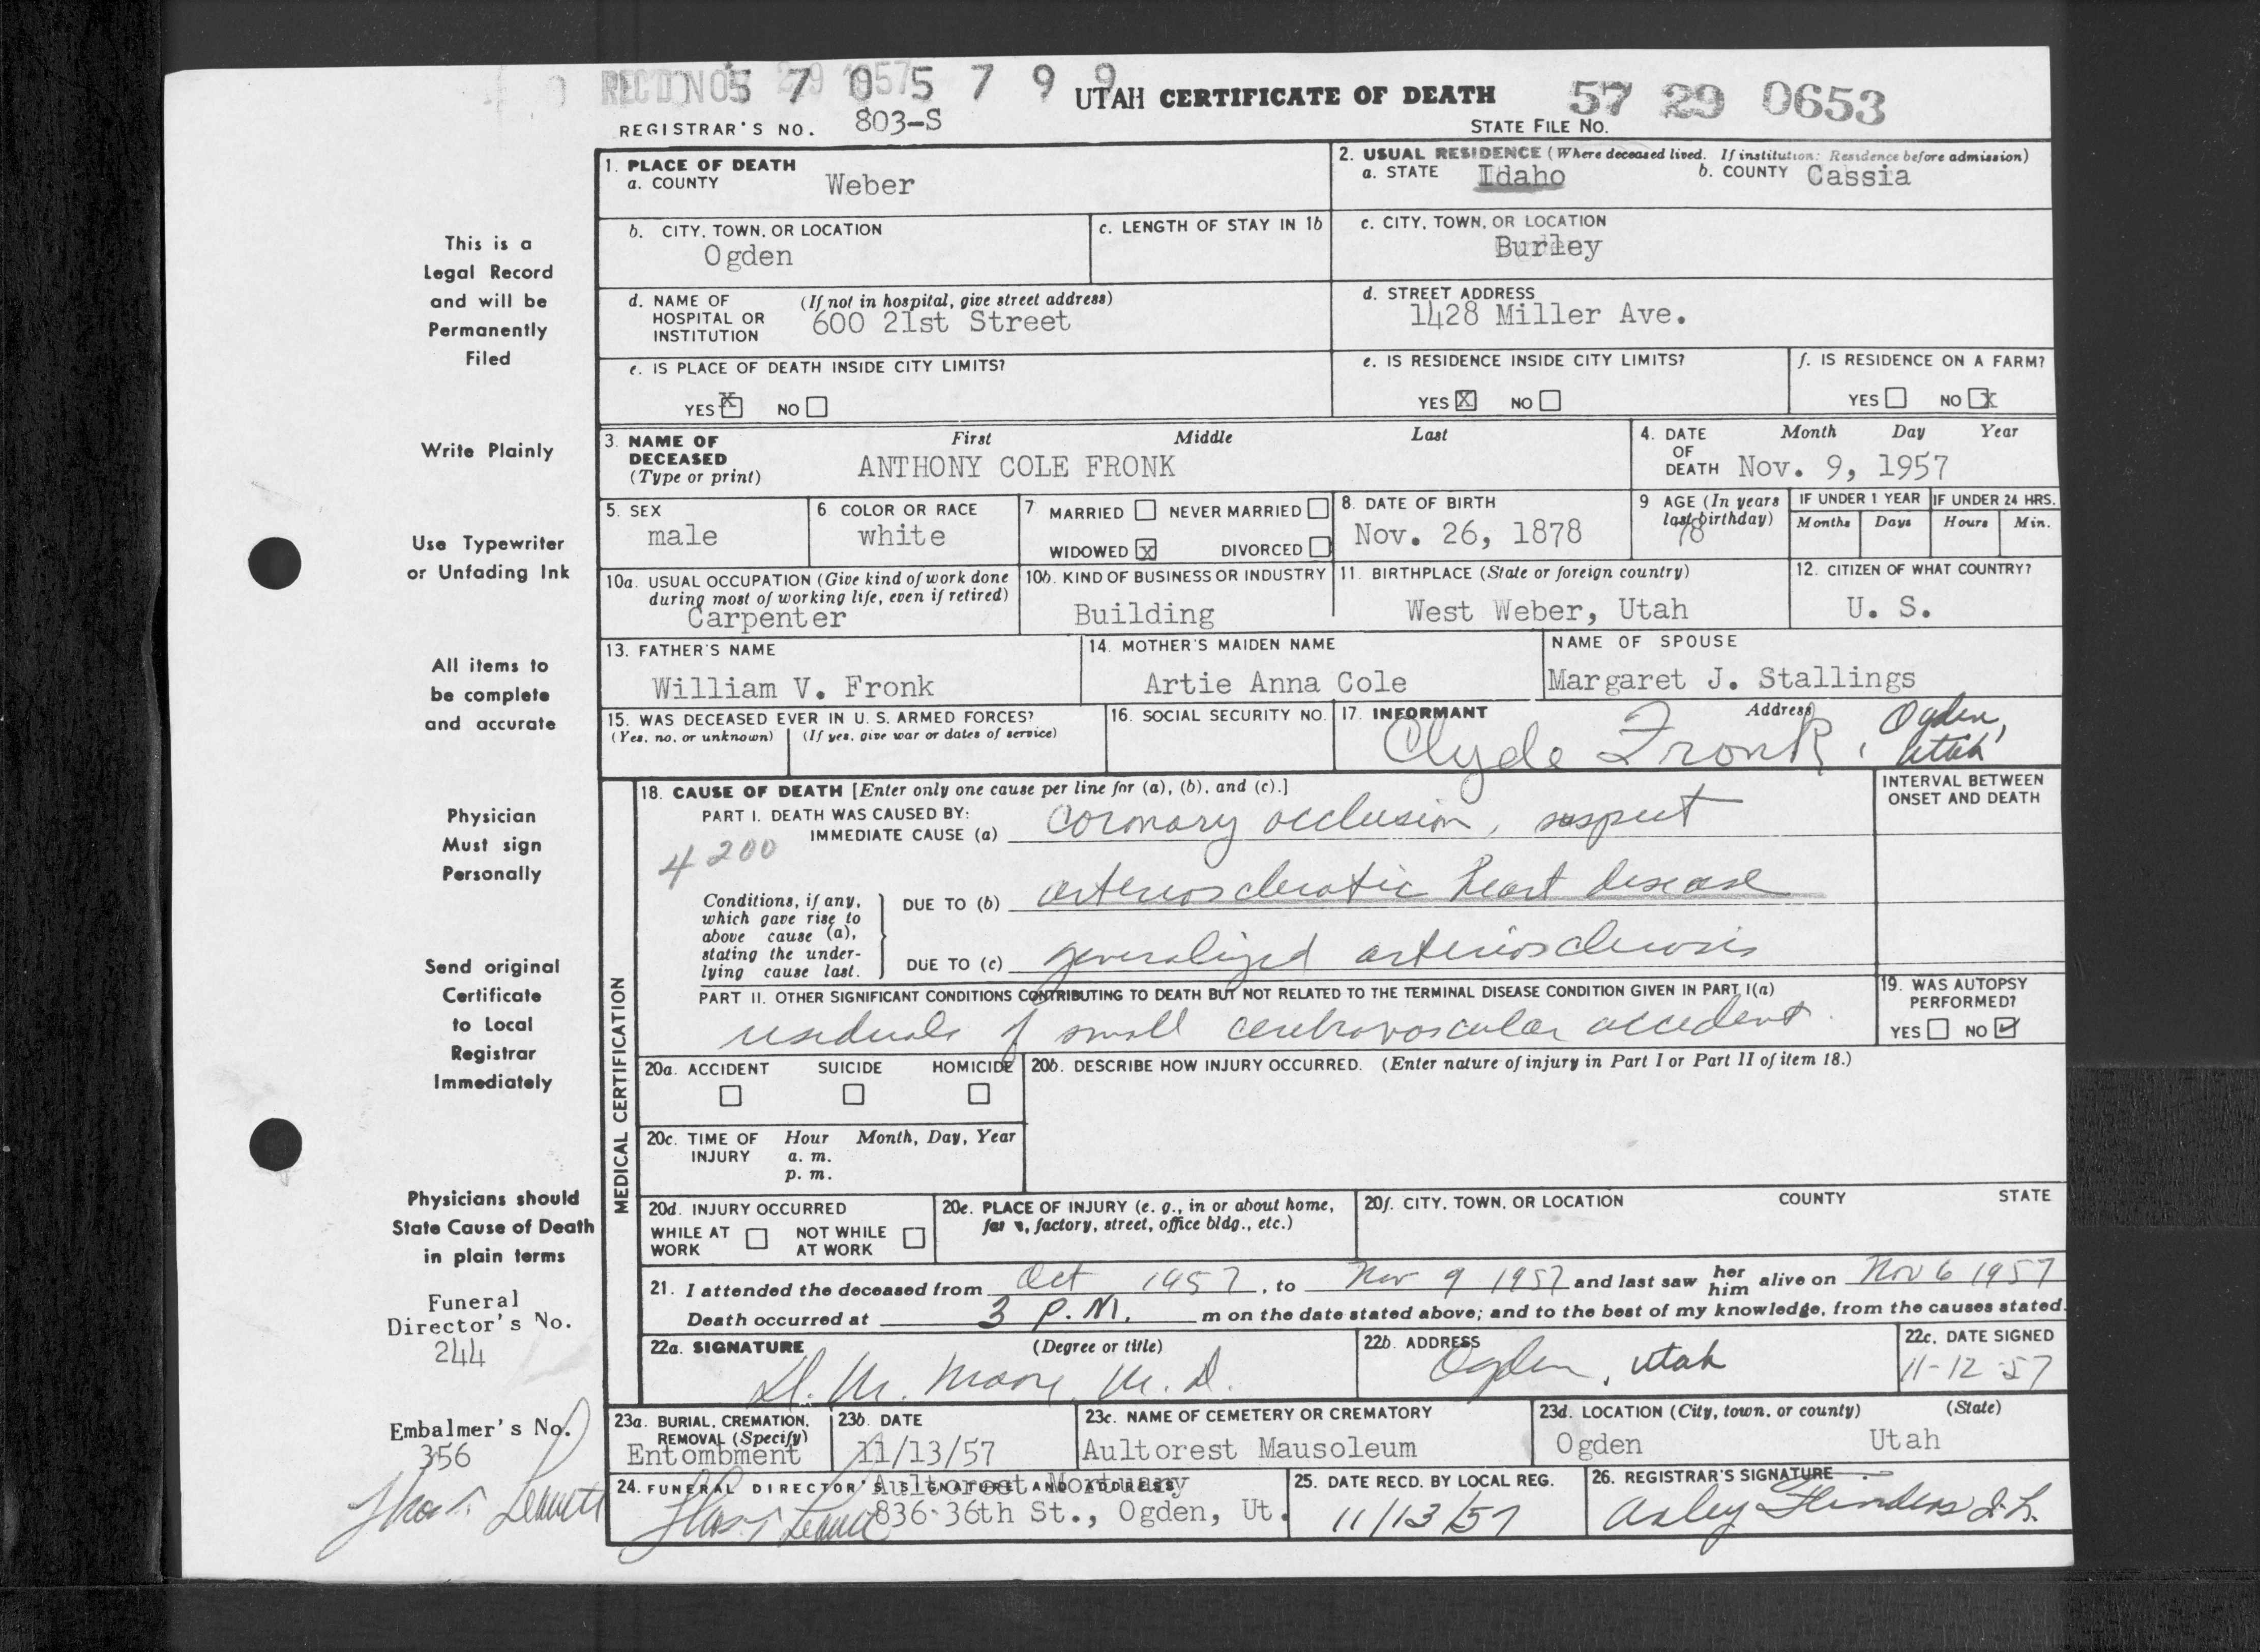 REC'D NOV 29 1957
5 7 0 5 7 9 9
UTAH CERTIFICATE OF DEATH
57 29 0653
REGISTRAR'S NO. 803-S
STATE FILE NO.
1. PLACE OF DEATH
a. COUNTY Weber
2. USUAL RESIDENCE (Where deceased lived. If institution: Residence before admission)
a. STATE Idaho b. COUNTY Cassia
b. CITY, TOWN, OR LOCATION
Ogden
c. LENGTH OF STAY IN 1b
c. CITY, TOWN, OR LOCATION
Burley
d. NAME OF HOSPITAL OR INSTITUTION (If not in hospital, give street address)
600 21st Street
d. STREET ADDRESS
1428 Miller Ave.
e. IS PLACE OF DEATH INSIDE CITY LIMITS?
YES X NO
e. IS RESIDENCE INSIDE CITY LIMITS?
YES X NO
f. IS RESIDENCE ON A FARM?
YES NO X
3. NAME OF DECEASED (Type or print)
First Middle Last
ANTHONY COLE FRONK
4. DATE OF DEATH Month Day Year
Nov. 9, 1957
5. SEX
male
6. COLOR OR RACE
white
7. MARRIED NEVER MARRIED
WIDOWED X DIVORCED
8. DATE OF BIRTH
Nov. 26, 1878
9 AGE (In years last birthday)
78
IF UNDER 1 YEAR
Months Days
IF UNDER 24 HRS.
Hours Min.
10a. USUAL OCCUPATION (Give kind of work done during most of working life, even if retired)
Carpenter
10b. KIND OF BUSINESS OR INDUSTRY
Building
11. BIRTHPLACE (State or foreign country)
West Weber, Utah
12. CITIZEN OF WHAT COUNTRY?
U. S.
13. FATHER'S NAME
William V. Fronk
14. MOTHER'S MAIDEN NAME
Artie Anna Cole
NAME OF SPOUSE
Margaret J. Stallings
15. WAS DECEASED EVER IN U. S. ARMED FORCES?
(Yes, no, or unknown) (If yes, give war or dates of service)
16. SOCIAL SECURITY NO.
17. INFORMANT Address
Clyde Fronk, Ogden, Utah
MEDICAL CERTIFICATION
18. CAUSE OF DEATH [Enter only one cause per line for (a), (b), and (c).]
INTERVAL BETWEEN ONSET AND DEATH
PART I. DEATH WAS CAUSED BY:
IMMEDIATE CAUSE (a) Coronary occlusion, suspect
4200
Conditions, if any, which gave rise to above cause (a), stating the underlying cause last.
DUE TO (b) arteriosclerotic heart disease
DUE TO (c) generalized arteriosclerosis
PART II. OTHER SIGNIFICANT CONDITIONS CONTRIBUTING TO DEATH BUT NOT RELATED TO THE TERMINAL DISEASE CONDITION GIVEN IN PART I(a)
residuals of small cerebrovascular accident.
19. WAS AUTOPSY PERFORMED?
YES NO ✓
20a. ACCIDENT SUICIDE HOMICIDE
20b. DESCRIBE HOW INJURY OCCURRED. (Enter nature of injury in Part I or Part II of item 18.)
20c. TIME OF INJURY Hour Month, Day, Year
a. m.
p. m.
20d. INJURY OCCURRED
WHILE AT WORK NOT WHILE AT WORK
20e. PLACE OF INJURY (e. g., in or about home, farm, factory, street, office bldg., etc.)
20f. CITY, TOWN, OR LOCATION COUNTY STATE
21. I attended the deceased from Oct 1957, to Nov 9 1957 and last saw her him alive on Nov 6 1957
Death occurred at 3 P.M. m on the date stated above; and to the best of my knowledge, from the causes stated.
22a. SIGNATURE (Degree or title)
Moore, M. D.
22b. ADDRESS
Ogden, Utah
22c. DATE SIGNED
11-12-57
23a. BURIAL, CREMATION, REMOVAL (Specify)
Entombment
23b. DATE
11/13/57
23c. NAME OF CEMETERY OR CREMATORY
Aultorest Mausoleum
23d. LOCATION (City, town, or county) (State)
Ogden Utah
24. FUNERAL DIRECTOR'S SIGNATURE AND ADDRESS
Aultorest Mortuary
836-36th St., Ogden, Ut.
25. DATE RECD. BY LOCAL REG.
11/13/57
26. REGISTRAR'S SIGNATURE
Flinders
This is a
Legal Record
and will be
Permanently
Filed
Write Plainly
Use Typewriter
or Unfading Ink
All items to
be complete
and accurate
Physician
Must sign
Personally
Send original
Certificate
to Local
Registrar
Immediately
Physicians should
State Cause of Death
in plain terms
Funeral
Director's No.
244
Embalmer's No.
356